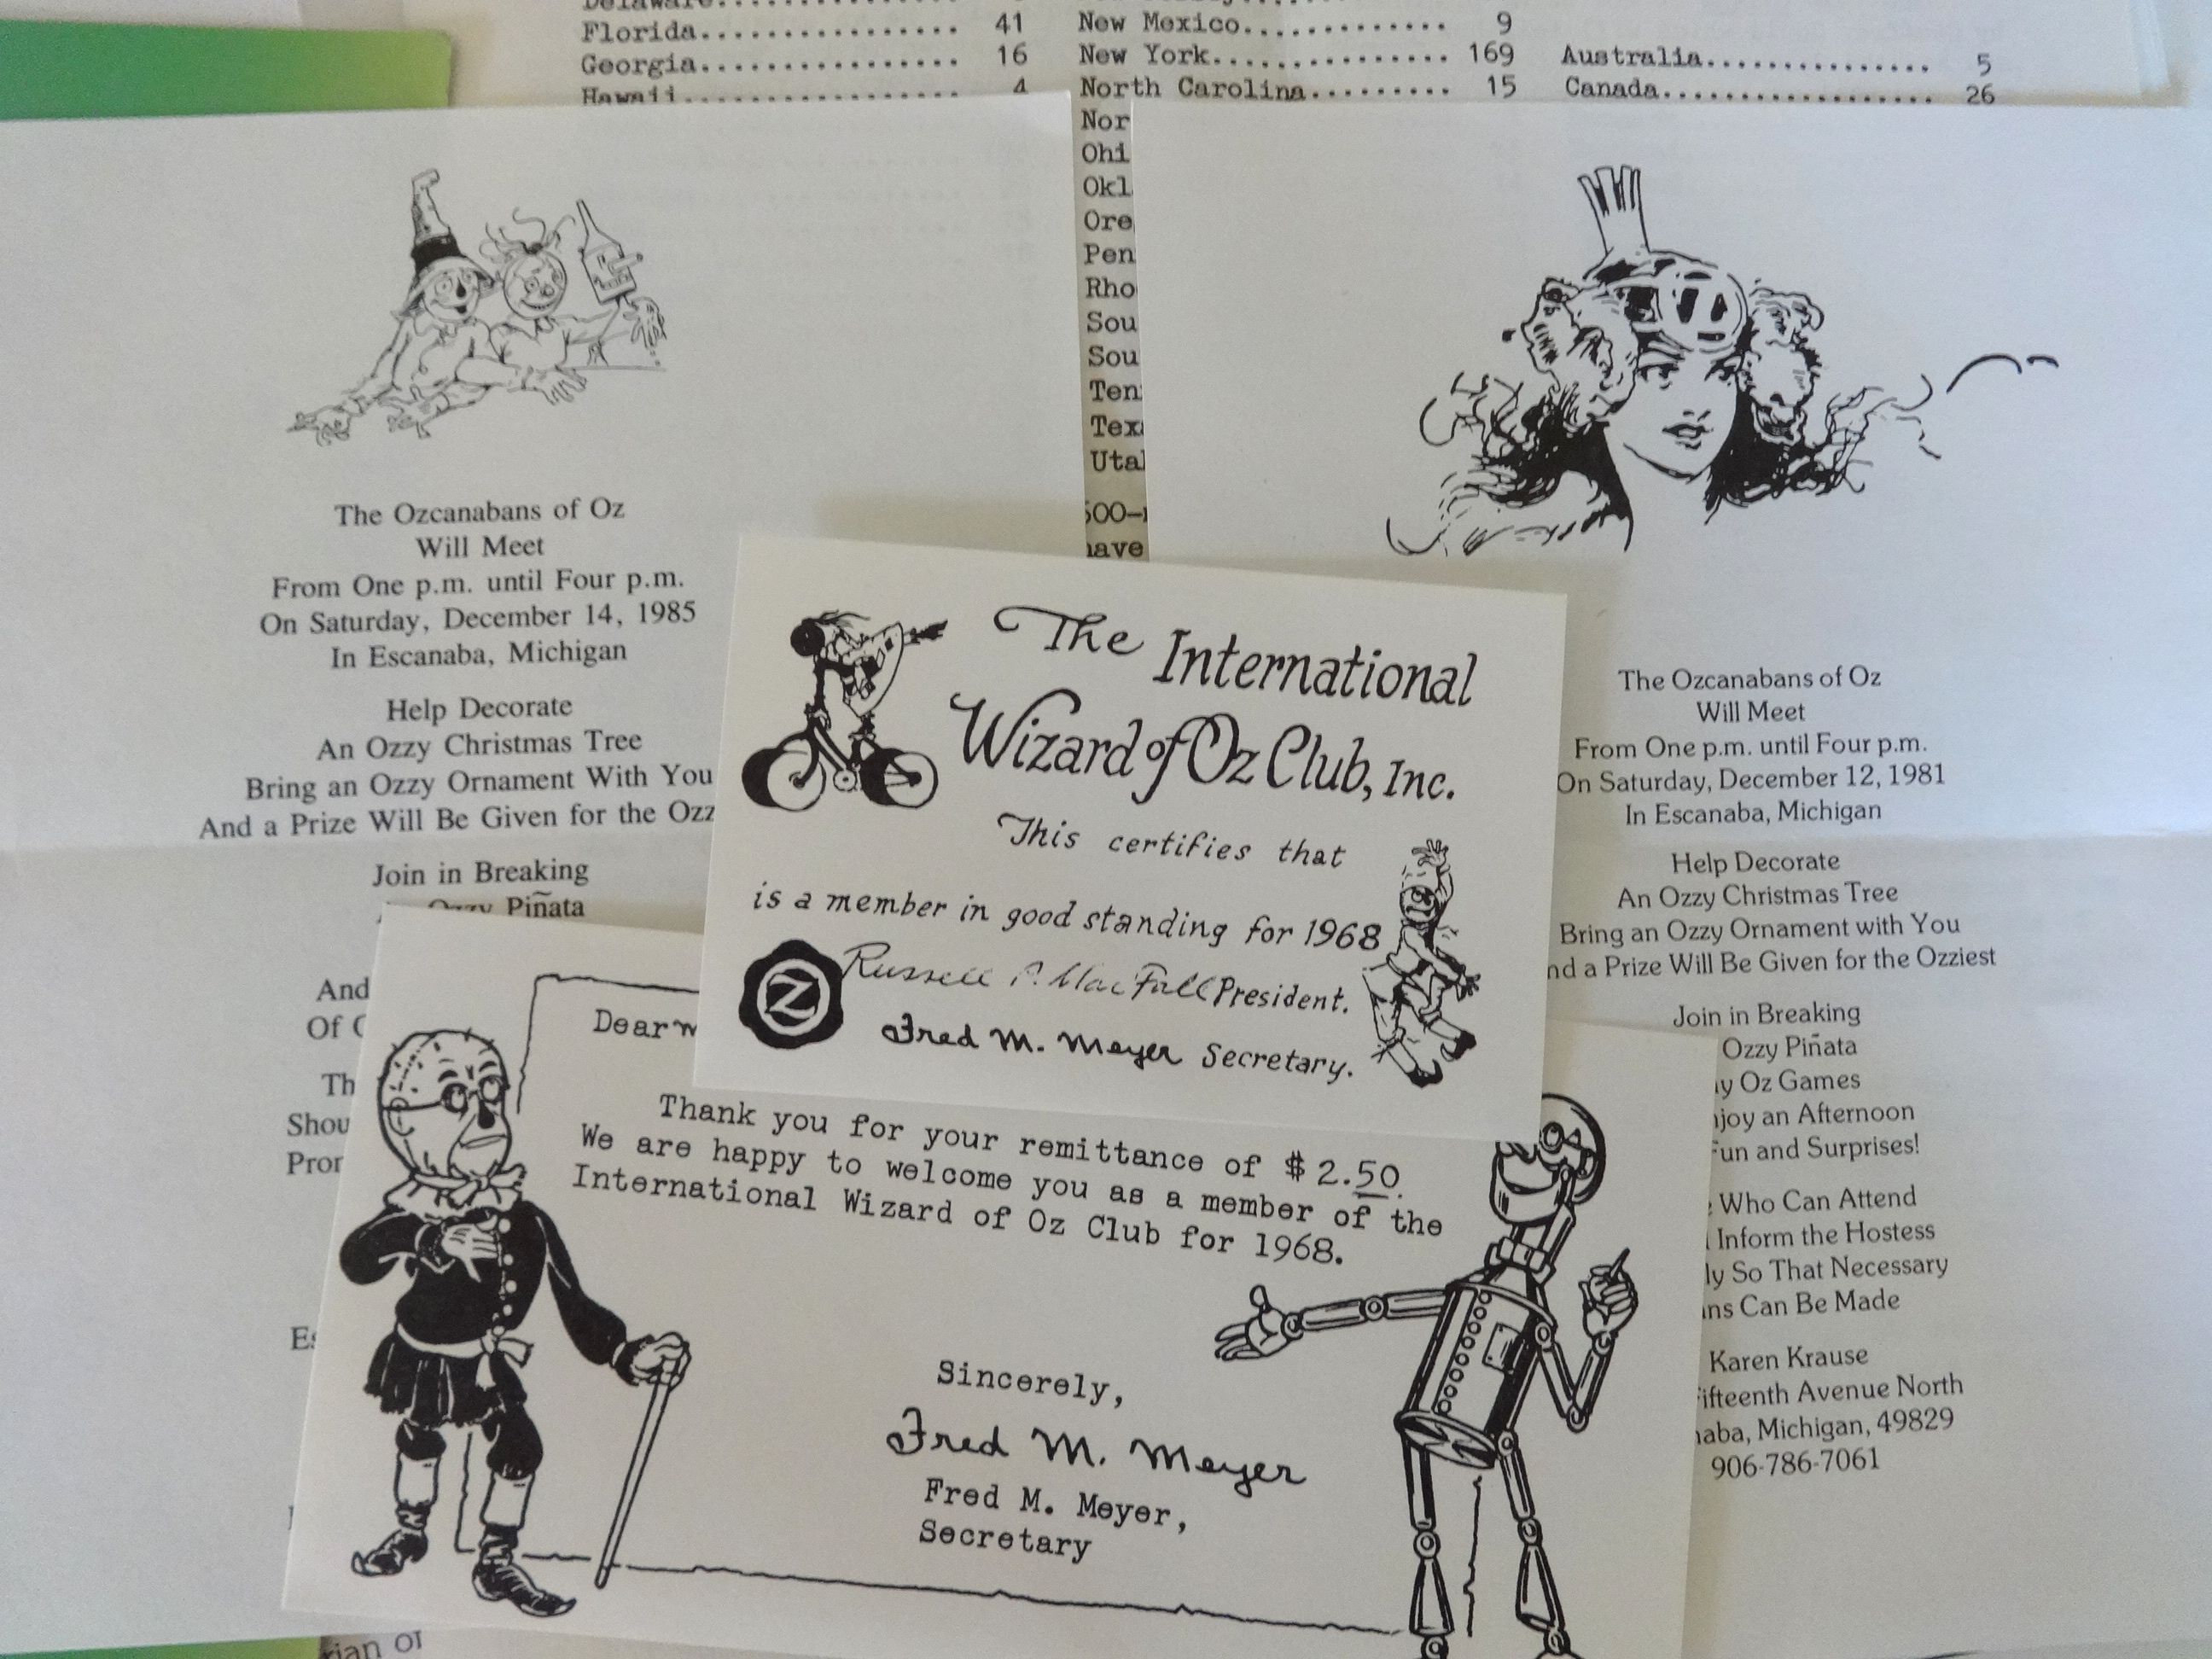 Delaware
Florida................ 41
Georgia................ 16
Hawaii................ 4
New Mexico............. 9
New York............... 169
North Carolina......... 15
Nor
Ohi
Okl
Ore
Pen
Rho
Sou
Sou
Ten
Tex
Uta
Australia............... 5
Canada.................. 26
The Ozcanabans of Oz
Will Meet
From One p.m. until Four p.m.
On Saturday, December 14, 1985
In Escanaba, Michigan
Help Decorate
An Ozzy Christmas Tree
Bring an Ozzy Ornament With You
And a Prize Will Be Given for the Ozz
Join in Breaking
Ozzy Piñata
And
Of
Th
Shou
The International
Wizard of Oz Club, Inc.
This certifies that
is a member in good standing for 1968
Russell P. MacFall President.
Fred M. Meyer Secretary.
OZ
Dear
Thank you for your remittance of $2.50.
We are happy to welcome you as a member of the
International Wizard of Oz Club for 1968.
Sincerely,
Fred M. Meyer
Fred M. Meyer,
Secretary
The Ozcanabans of Oz
Will Meet
From One p.m. until Four p.m.
On Saturday, December 12, 1981
In Escanaba, Michigan
Help Decorate
An Ozzy Christmas Tree
Bring an Ozzy Ornament with You
nd a Prize Will Be Given for the Ozziest
Join in Breaking
Ozzy Piñata
y Oz Games
njoy an Afternoon
Fun and Surprises!
Who Can Attend
Inform the Hostess
ly So That Necessary
ns Can Be Made
Karen Krause
ifteenth Avenue North
naba, Michigan, 49829
906-786-7061